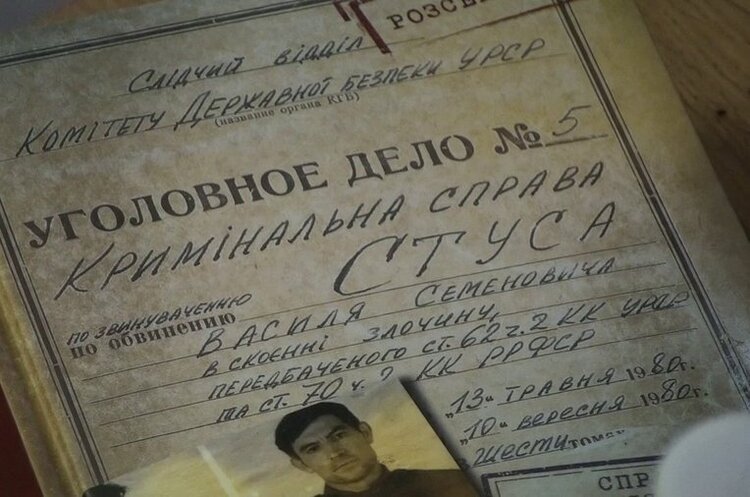 РОЗС
Слідчий відділ
Комітету Державної безпеки УРСР
(название органа КГБ)
УГОЛОВНОЕ ДЕЛО № 5
Кримінальна справа
СТУСА
по звинуваченню
по обвинению
Василя Семеновича
в скоєнні злочину,
передбаченого ст. 62 ч. 2 КК УРСР
та ст. 70 ч. 2 КК РРФСР
„13“ травня 1980г.
„10“ вересня 1980г.
шести томах
СПР